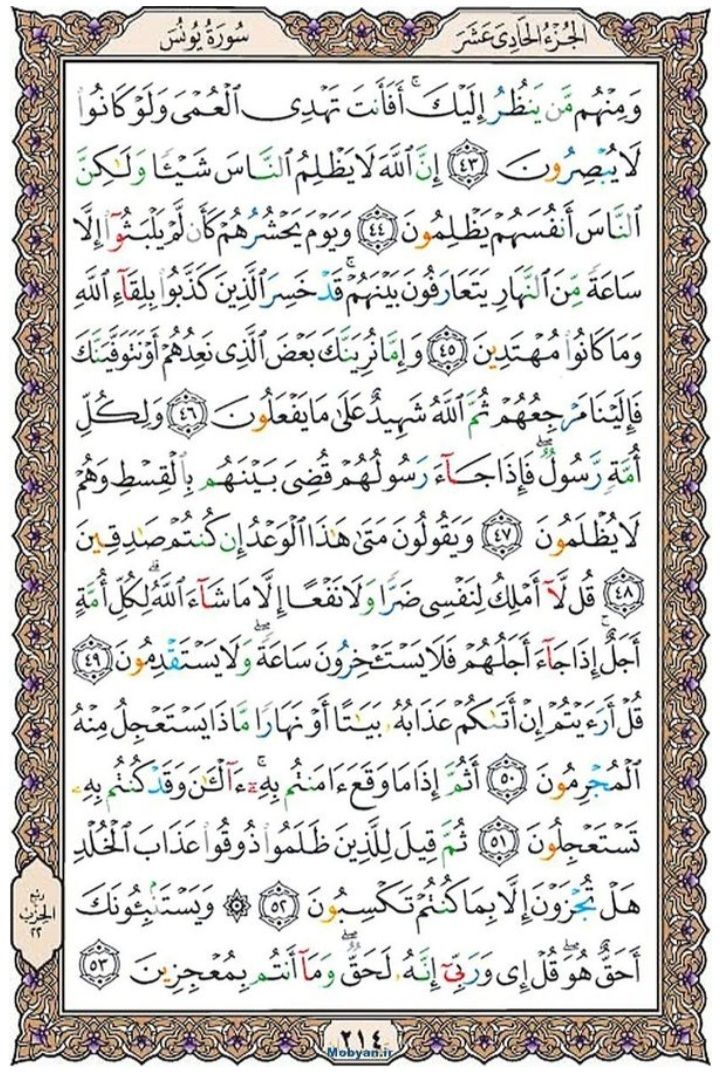 الجُزءُ الحَادِىَ عَشَرَ
سُورَةُ يُونُس
وَمِنْهُم مَّن يَنظُرُ إِلَيْكَ ۚ أَفَأَنتَ تَهْدِى الْعُمْىَ وَلَوْ كَانُوا
لَا يُبْصِرُونَ ٤٣ إِنَّ اللَّهَ لَا يَظْلِمُ النَّاسَ شَيْئًا وَلَٰكِنَّ
النَّاسَ أَنفُسَهُمْ يَظْلِمُونَ ٤٤ وَيَوْمَ يَحْشُرُهُمْ كَأَن لَّمْ يَلْبَثُوٓا إِلَّا
سَاعَةً مِّنَ النَّهَارِ يَتَعَارَفُونَ بَيْنَهُمْ ۚ قَدْ خَسِرَ الَّذِينَ كَذَّبُوا بِلِقَآءِ اللَّهِ
وَمَا كَانُوا مُهْتَدِينَ ٤٥ وَإِمَّا نُرِيَنَّكَ بَعْضَ الَّذِى نَعِدُهُمْ أَوْ نَتَوَفَّيَنَّكَ
فَإِلَيْنَا مَرْجِعُهُمْ ثُمَّ اللَّهُ شَهِيدٌ عَلَىٰ مَا يَفْعَلُونَ ٤٦ وَلِكُلِّ
أُمَّةٍ رَّسُولٌ ۖ فَإِذَا جَآءَ رَسُولُهُمْ قُضِىَ بَيْنَهُم بِالْقِسْطِ وَهُمْ
لَا يُظْلَمُونَ ٤٧ وَيَقُولُونَ مَتَىٰ هَٰذَا الْوَعْدُ إِن كُنتُمْ صَٰدِقِينَ
٤٨ قُل لَّآ أَمْلِكُ لِنَفْسِى ضَرًّا وَلَا نَفْعًا إِلَّا مَا شَآءَ اللَّهُ ۗ لِكُلِّ أُمَّةٍ
أَجَلٌ ۚ إِذَا جَآءَ أَجَلُهُمْ فَلَا يَسْتَـْٔخِرُونَ سَاعَةً ۖ وَلَا يَسْتَقْدِمُونَ ٤٩
قُلْ أَرَءَيْتُمْ إِنْ أَتَىٰكُمْ عَذَابُهُۥ بَيَٰتًا أَوْ نَهَارًا مَّاذَا يَسْتَعْجِلُ مِنْهُ
الْمُجْرِمُونَ ٥٠ أَثُمَّ إِذَا مَا وَقَعَ ءَامَنتُم بِهِۦٓ ۚ ءَآلْـَٰٔنَ وَقَدْ كُنتُم بِهِۦ
تَسْتَعْجِلُونَ ٥١ ثُمَّ قِيلَ لِلَّذِينَ ظَلَمُوا ذُوقُوا عَذَابَ الْخُلْدِ
هَلْ تُجْزَوْنَ إِلَّا بِمَا كُنتُمْ تَكْسِبُونَ ٥٢ ۞ وَيَسْتَنۢبِـُٔونَكَ
أَحَقٌّ هُوَ ۖ قُلْ إِى وَرَبِّىٓ إِنَّهُۥ لَحَقٌّ ۖ وَمَآ أَنتُم بِمُعْجِزِينَ ٥٣
ربع
الحزب
٢٢
٢١٤
Mobyan.ir